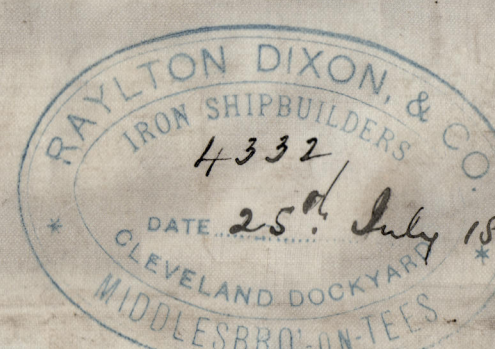 RAYLTON DIXON, & CO.
IRON SHIPBUILDERS
4332
DATE 25th July 18
CLEVELAND DOCKYARD
MIDDLESBRO'-ON-TEES